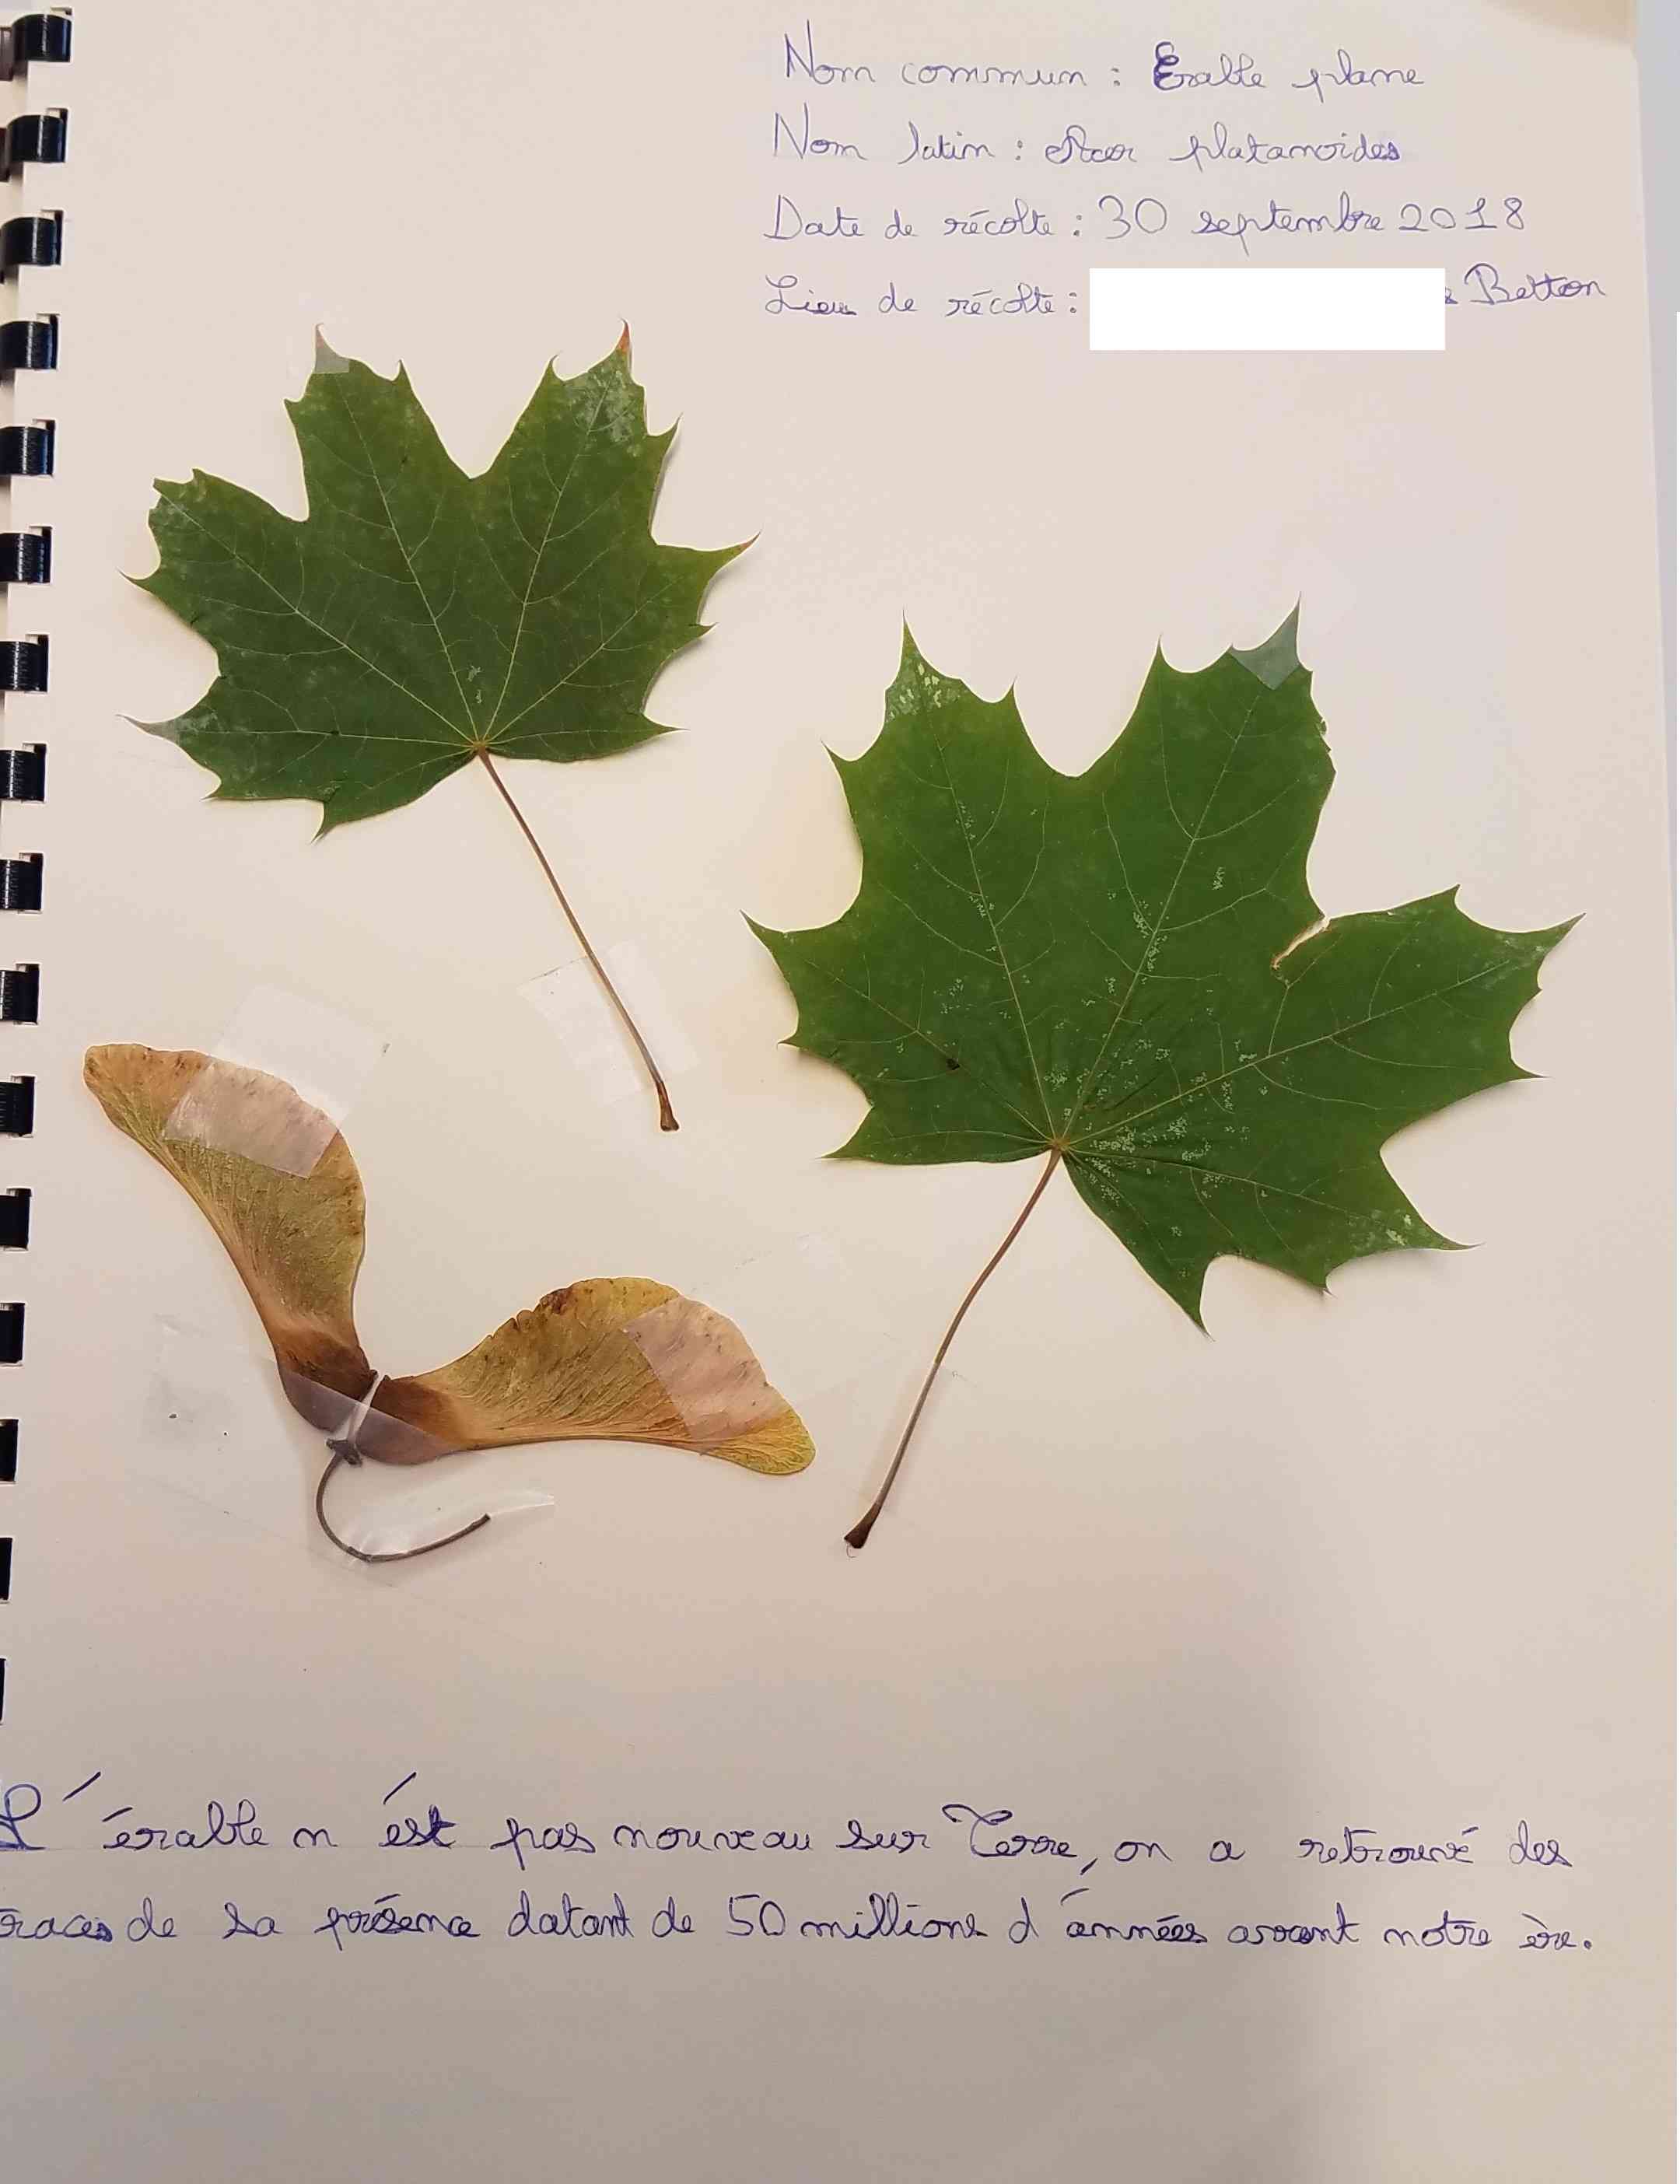 Nom commun : Erable plane
Nom latin : Acer platanoides
Date de récolte : 30 septembre 2018
Lieu de récolte : Betton
L'érable n'est pas nouveau sur Terre, on a retrouvé des
traces de sa présence datant de 50 millions d'années avant notre ère.